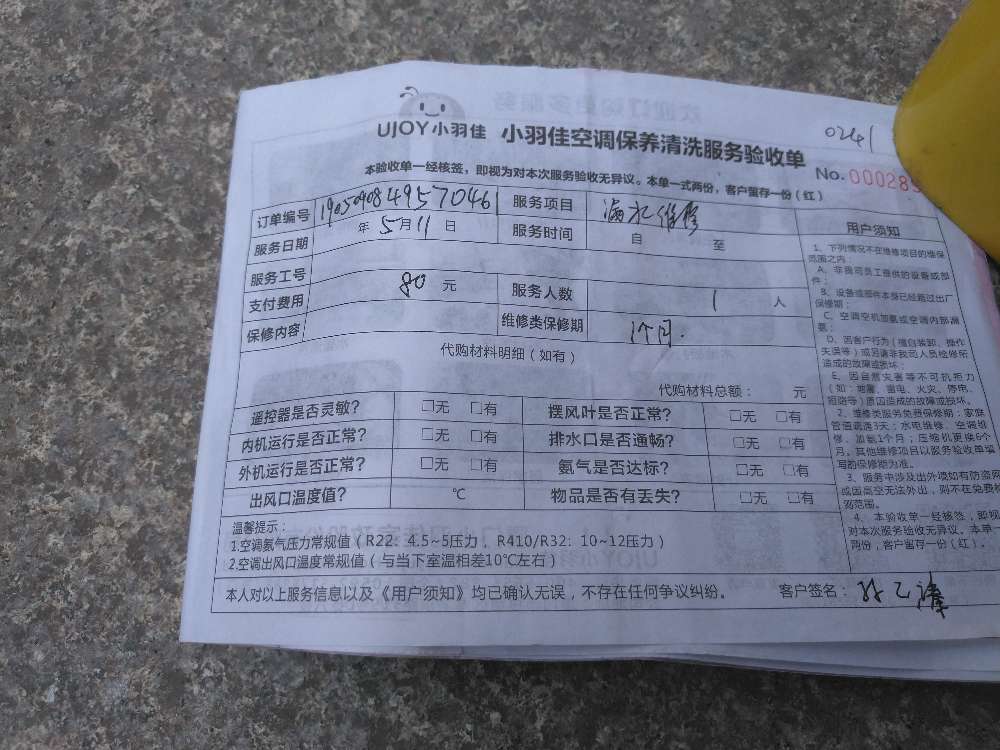 UJOY小羽佳 小羽佳空调保养清洗服务验收单
0241
No. 00028
本验收单一经核签，即视为对本次服务验收无异议。本单一式两份，客户留存一份（红）
订单编号 190509084957046 服务项目 漏水维修
服务日期 年 5月11日 服务时间 自 至
服务工号
支付费用 80 元 服务人数 1 人
保修内容 维修类保修期 1个月.
代购材料明细（如有）
代购材料总额： 元
遥控器是否灵敏? □无 □有 摆风叶是否正常? □无 □有
内机运行是否正常? □无 □有 排水口是否通畅? □无 □有
外机运行是否正常? □无 □有 氨气是否达标? □无 □有
出风口温度值? ℃ 物品是否有丢失? □无 □有
温馨提示：
1.空调氨气压力常规值（R22：4.5~5压力，R410/R32：10~12压力）
2.空调出风口温度常规值（与当下室温相差10℃左右）
用户须知
1、下列情况不在维修项目的维保
范围之内：
A、非我司员工提供的设备或部
件；
B、设备或部件本身已经超过出厂
保修期；
C、空调空机加氨或空调内部漏
氨；
D、因客户行为（擅自装卸、操作
失误等）或另请非我司人员检修所
造成的故障或损坏；
E、因自然灾害等不可抗拒力
（如：地震、雷电、火灾、停电、
短路等）原因造成的故障或损坏。
2、维修类服务免费保修期：家庭
管道疏通3天；水电维修、空调维
修、加氨1个月；压缩机更换6个
月。其他维修项目以服务验收单填
写的保修期为准。
3、服务中涉及出外墙如有防盗网
或因高空无法外出，则不在免费
范围。
4、本验收单一经核签，即视
对本次服务验收无异议。本单一
两份，客户留存一份（红）。
本人对以上服务信息以及《用户须知》均已确认无误，不存在任何争议纠纷。 客户签名：